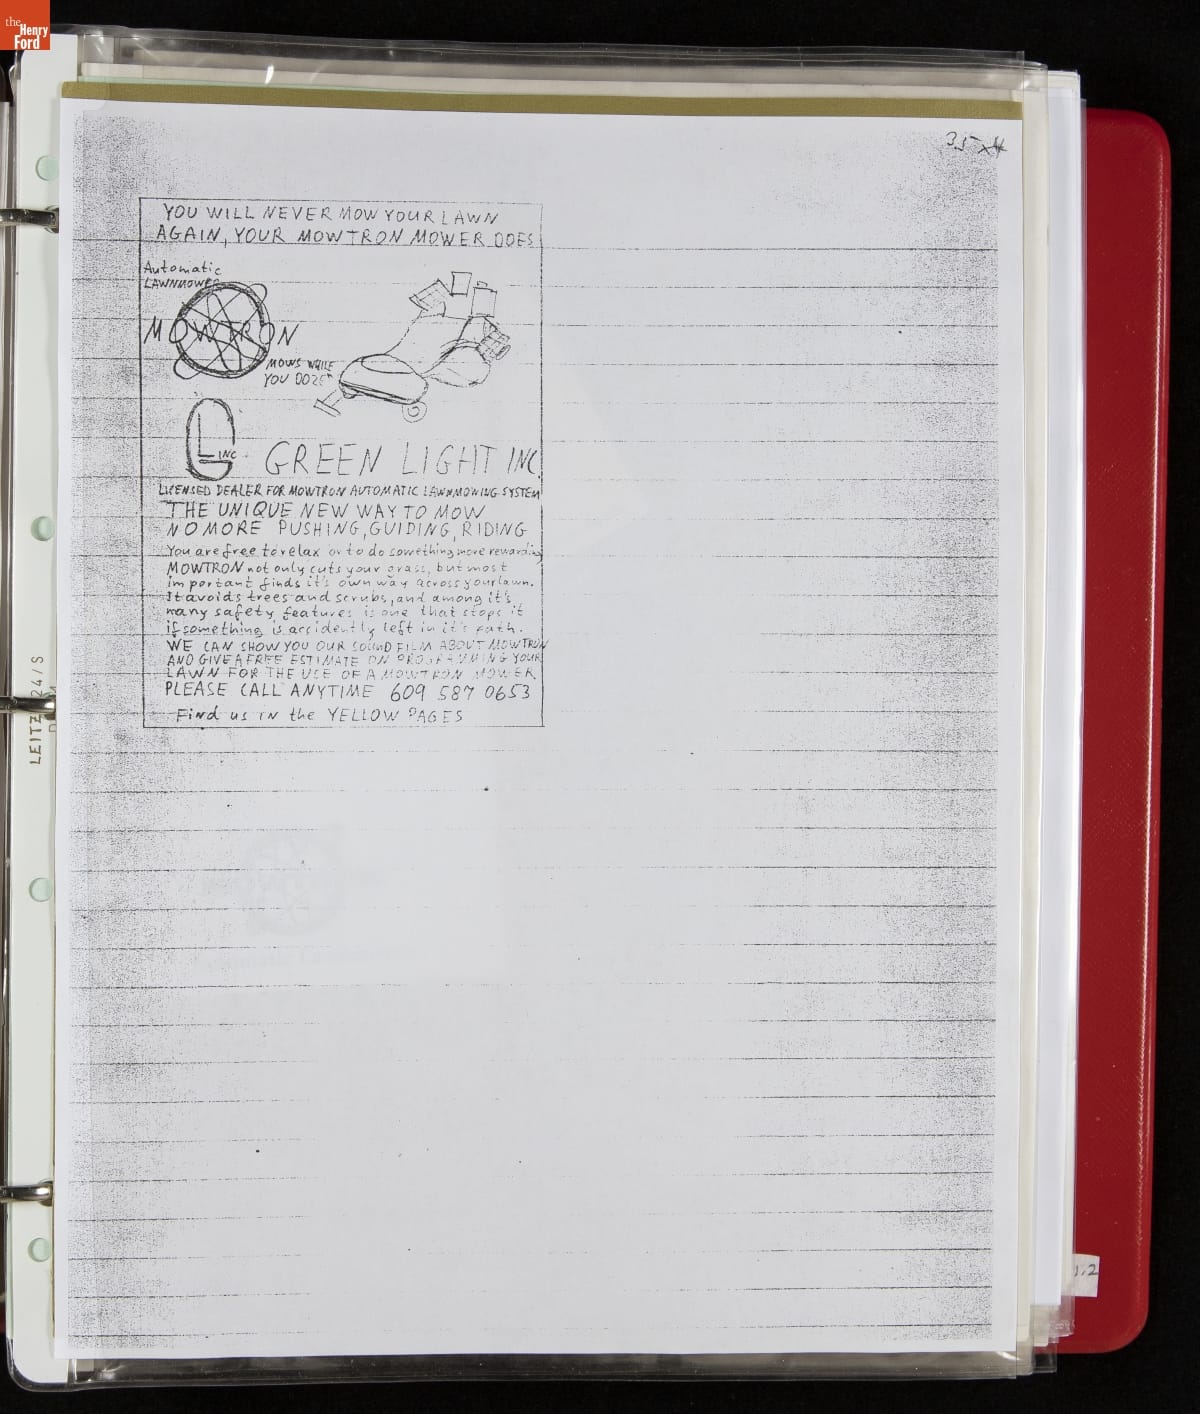 the
Henry
Ford
35 x4
YOU WILL NEVER MOW YOUR LAWN
AGAIN, YOUR MOWTRON MOWER DOES
Automatic
LAWNMOWER
MOWTRON
MOWS WHILE
YOU DOZE
GL INC
GREEN LIGHT INC.
LICENSED DEALER FOR MOWTRON AUTOMATIC LAWNMOWING SYSTEM
THE UNIQUE NEW WAY TO MOW
NO MORE PUSHING, GUIDING, RIDING
You are free to relax or to do something more rewarding
MOWTRON not only cuts your grass, but most
important finds it's own way across your lawn.
It avoids trees and scrubs, and among it's
many safety features is one that stops it
if something is accidently left in it's path.
WE CAN SHOW YOU OUR SOUND FILM ABOUT MOWTRON
AND GIVE A FREE ESTIMATE ON PROGRAMMING YOUR
LAWN FOR THE USE OF A MOWTRON MOWER
PLEASE CALL ANYTIME 609 587 0653
Find us in the YELLOW PAGES
LEITZ 24/S